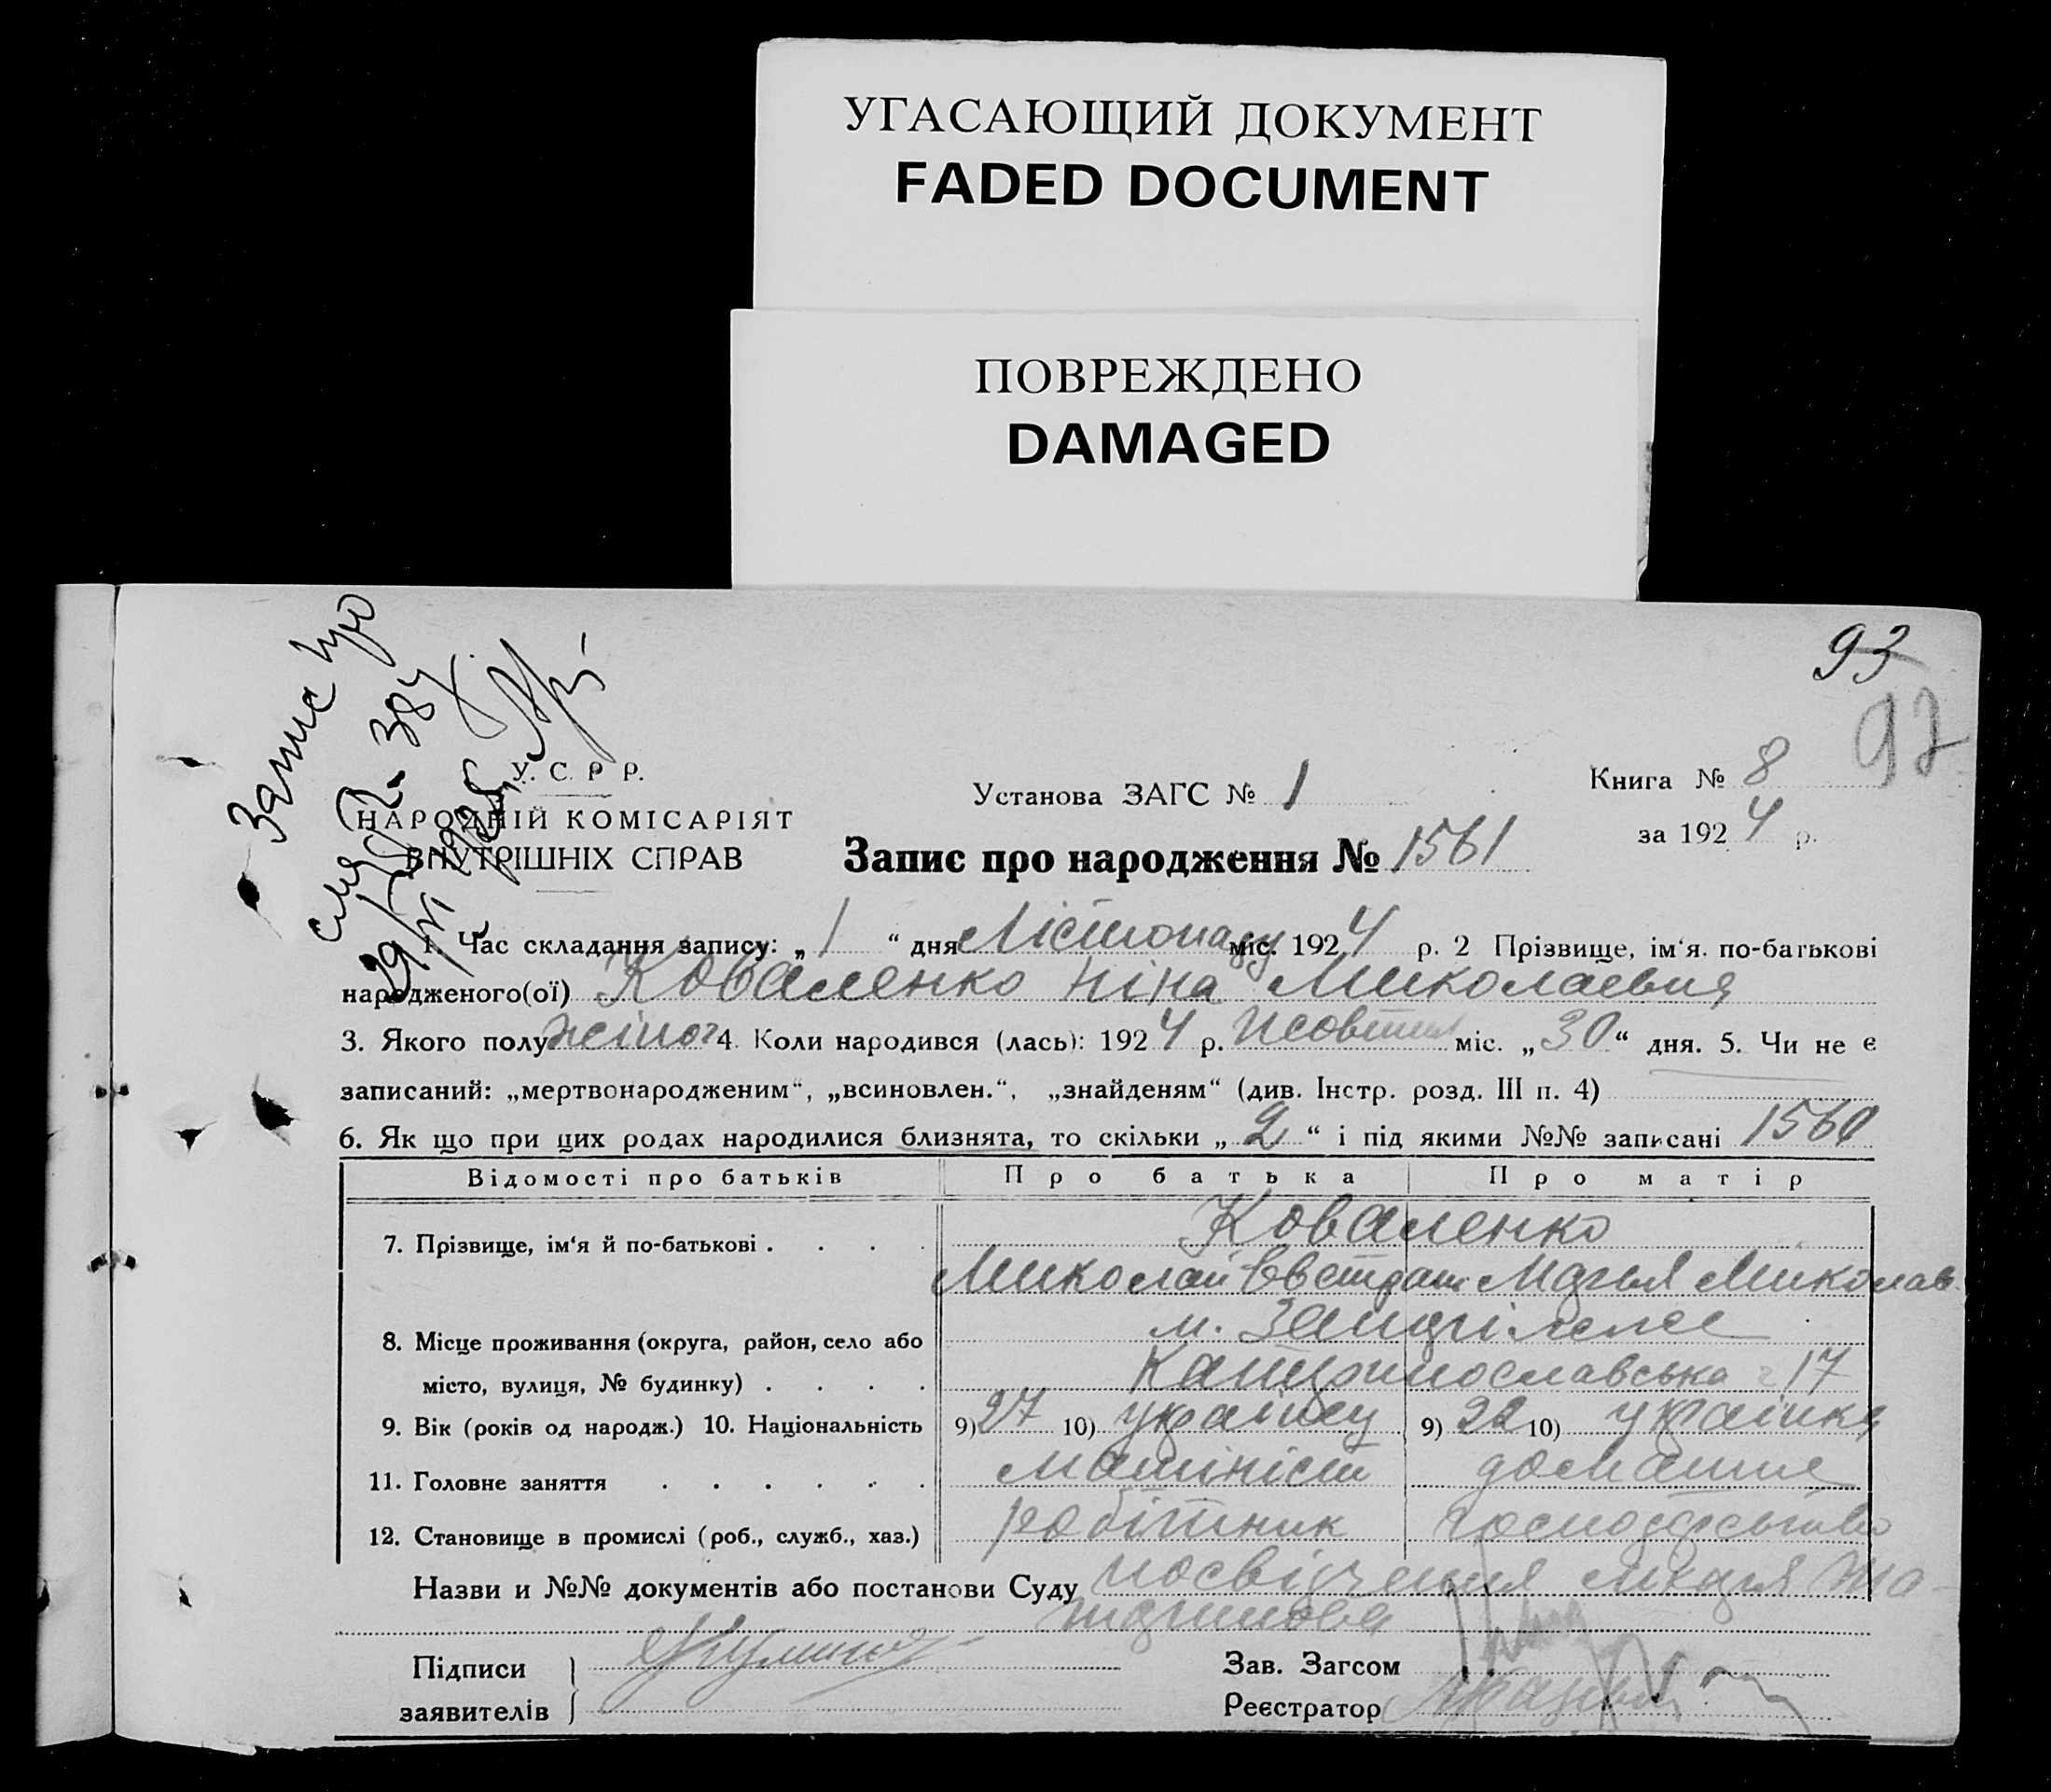 УГАСАЮЩИЙ ДОКУМЕНТ
FADED DOCUMENT
ПОВРЕЖДЕНО
DAMAGED
93
97
Запис про
У. С. Р Р.
НАРОДНІЙ КОМІСАРІЯТ
ВНУТРІШНІХ СПРАВ
Установа ЗАГС № 1
Книга № 8
за 1924 р.
Запис про народження № 1561
1. Час складання запису: „ 1 “ дня Лістопаду міс. 1924 р. 2 Прізвище, ім‘я. по-батькові
народженого(ої) Коваленко Ніна Миколаевна
3. Якого полу жіноч 4. Коли народився (лась): 1924 р. Жовтня міс. „30“ дня. 5. Чи не є
записаний: „мертвонародженим“, „всиновлен.“, „знайденям“ (див. Інстр. розд. III п. 4)
6. Як що при цих родах народилися близнята, то скільки „ 2 “ і під якими №№ записані 1560
Відомості про батьків Про батька Про матір
7. Прізвище, ім‘я й по-батькові . . . . Коваленко
Миколай Евстрат Марья Миколав
8. Місце проживання (округа, район, село або
місто, вулиця, № будинку) . . . . Катеринославська 17
9. Вік (років од народж.) 10. Національність 9) 27 10) українец 9) 22 10) українка
11. Головне заняття . . . . . . машініст домашне
12. Становище в промислі (роб., служб., хаз.) робітник господарство
Назви и №№ документів або постанови Суду посвідчення лікаря
Підписи
заявителів
Зав. Загсом
Реєстратор